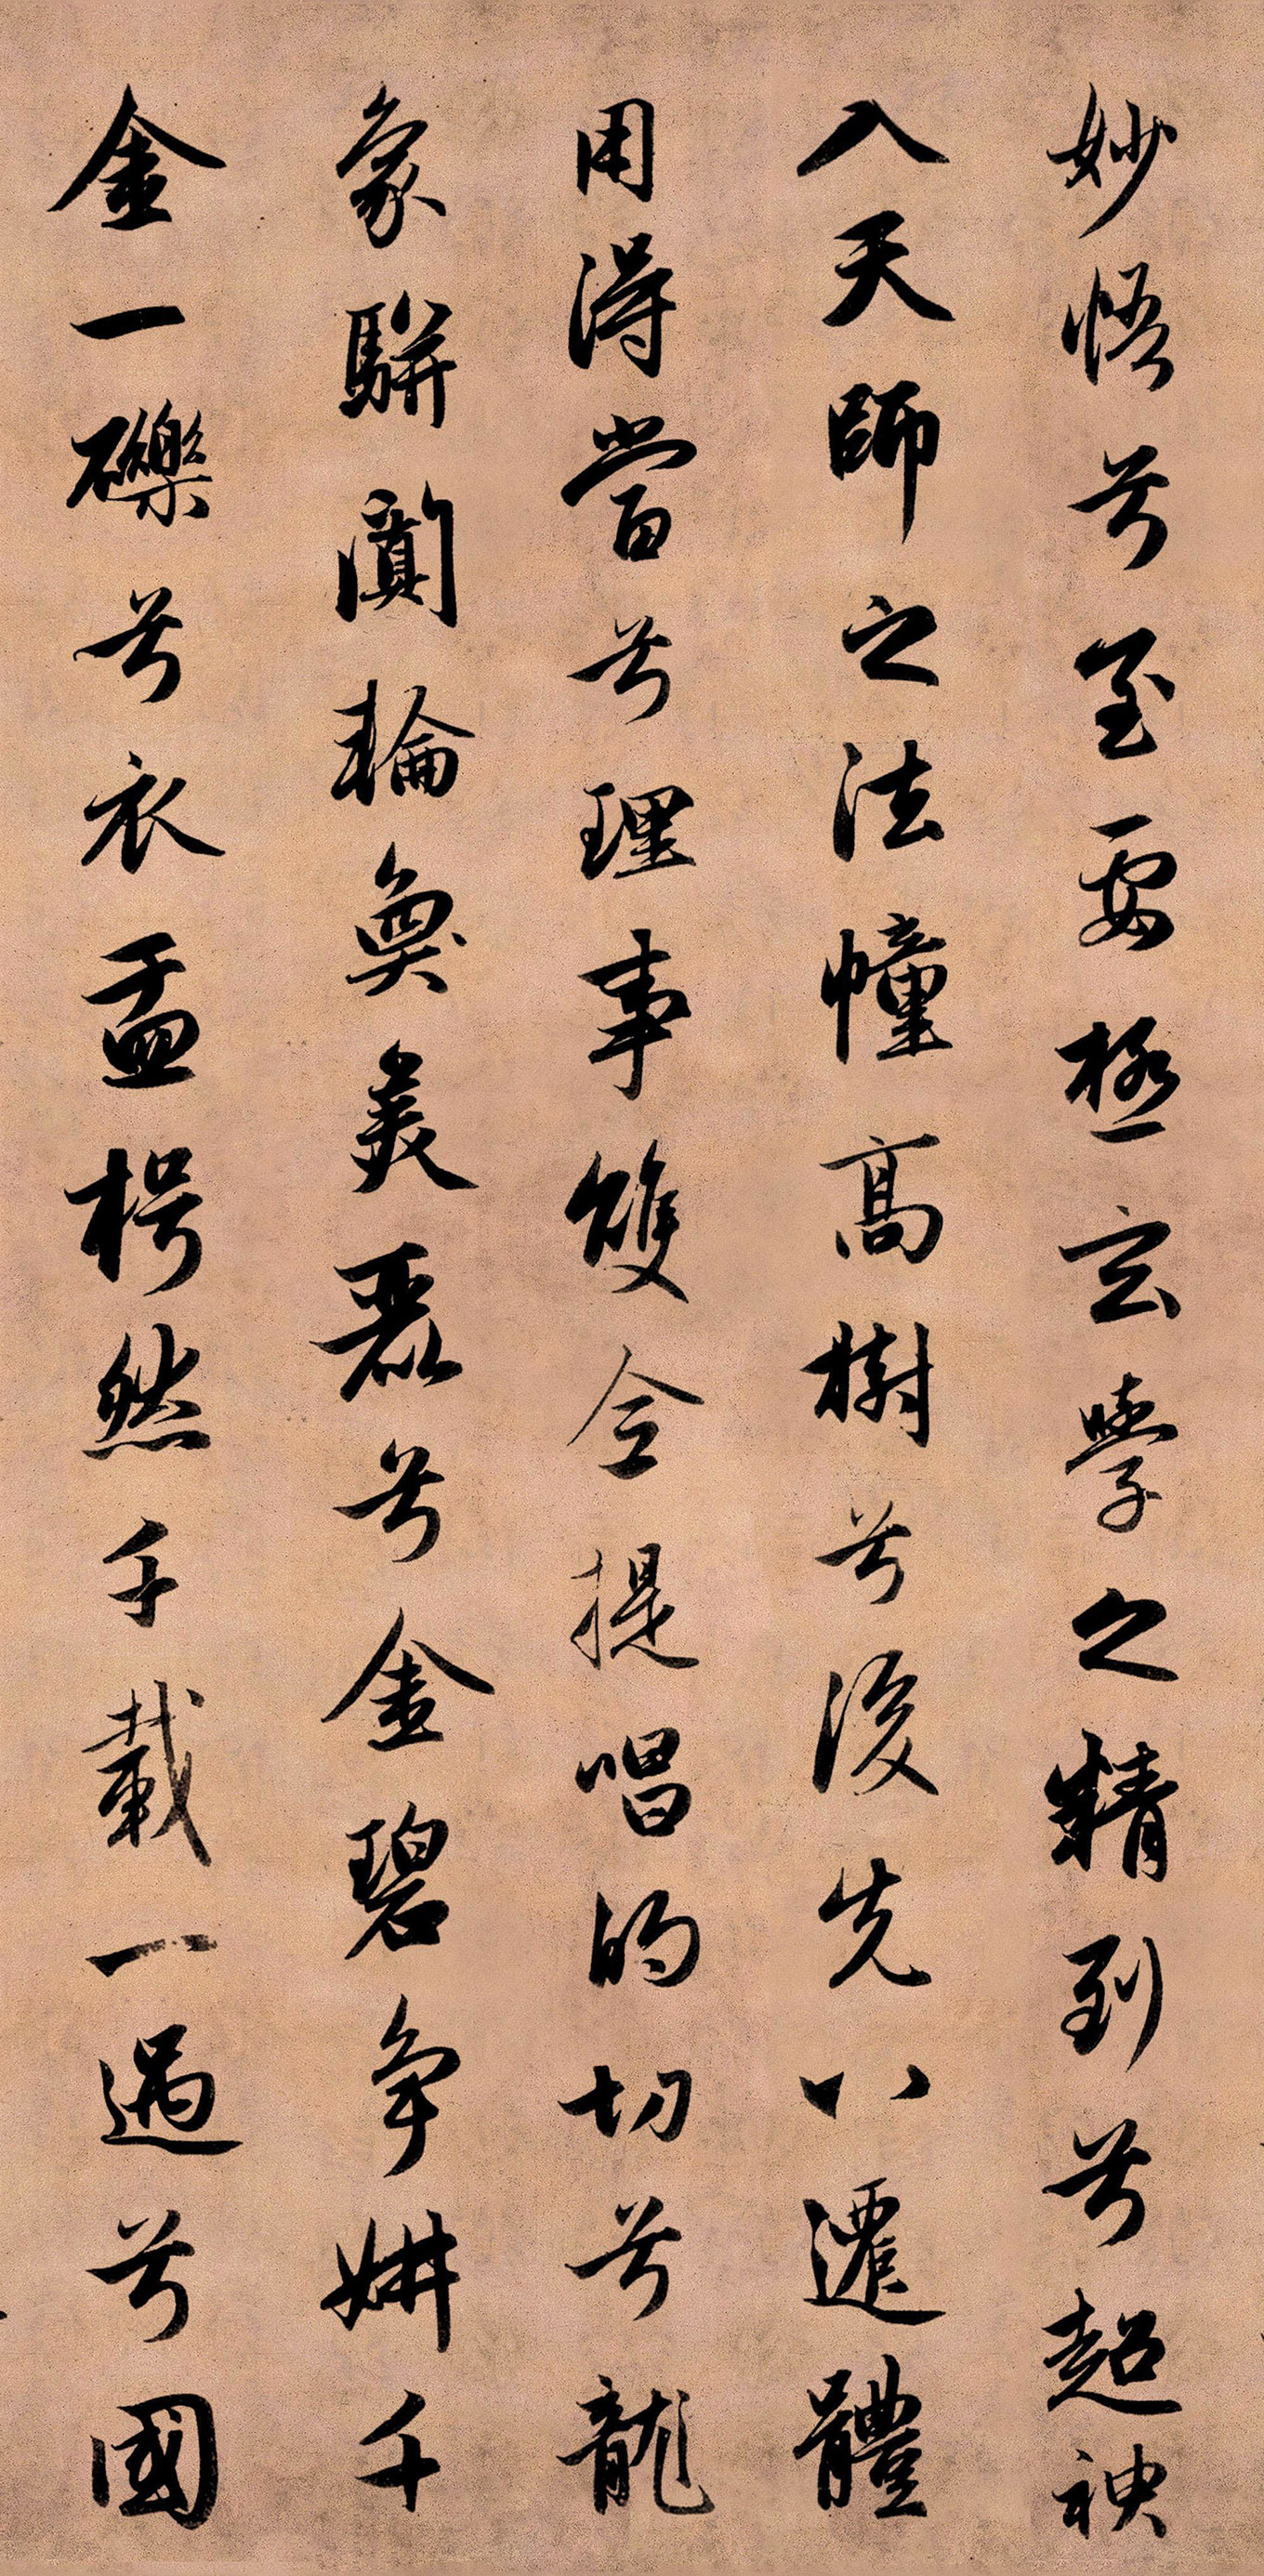 妙悟兮至要極玄學之精到兮超神
入天師之法幢高樹兮後先八遷體
用得當兮理事雙全提唱的切兮龍
象駢闐輪奐美麗兮金碧爭妍千
金一礫兮衣盂枵然千載一遇兮國